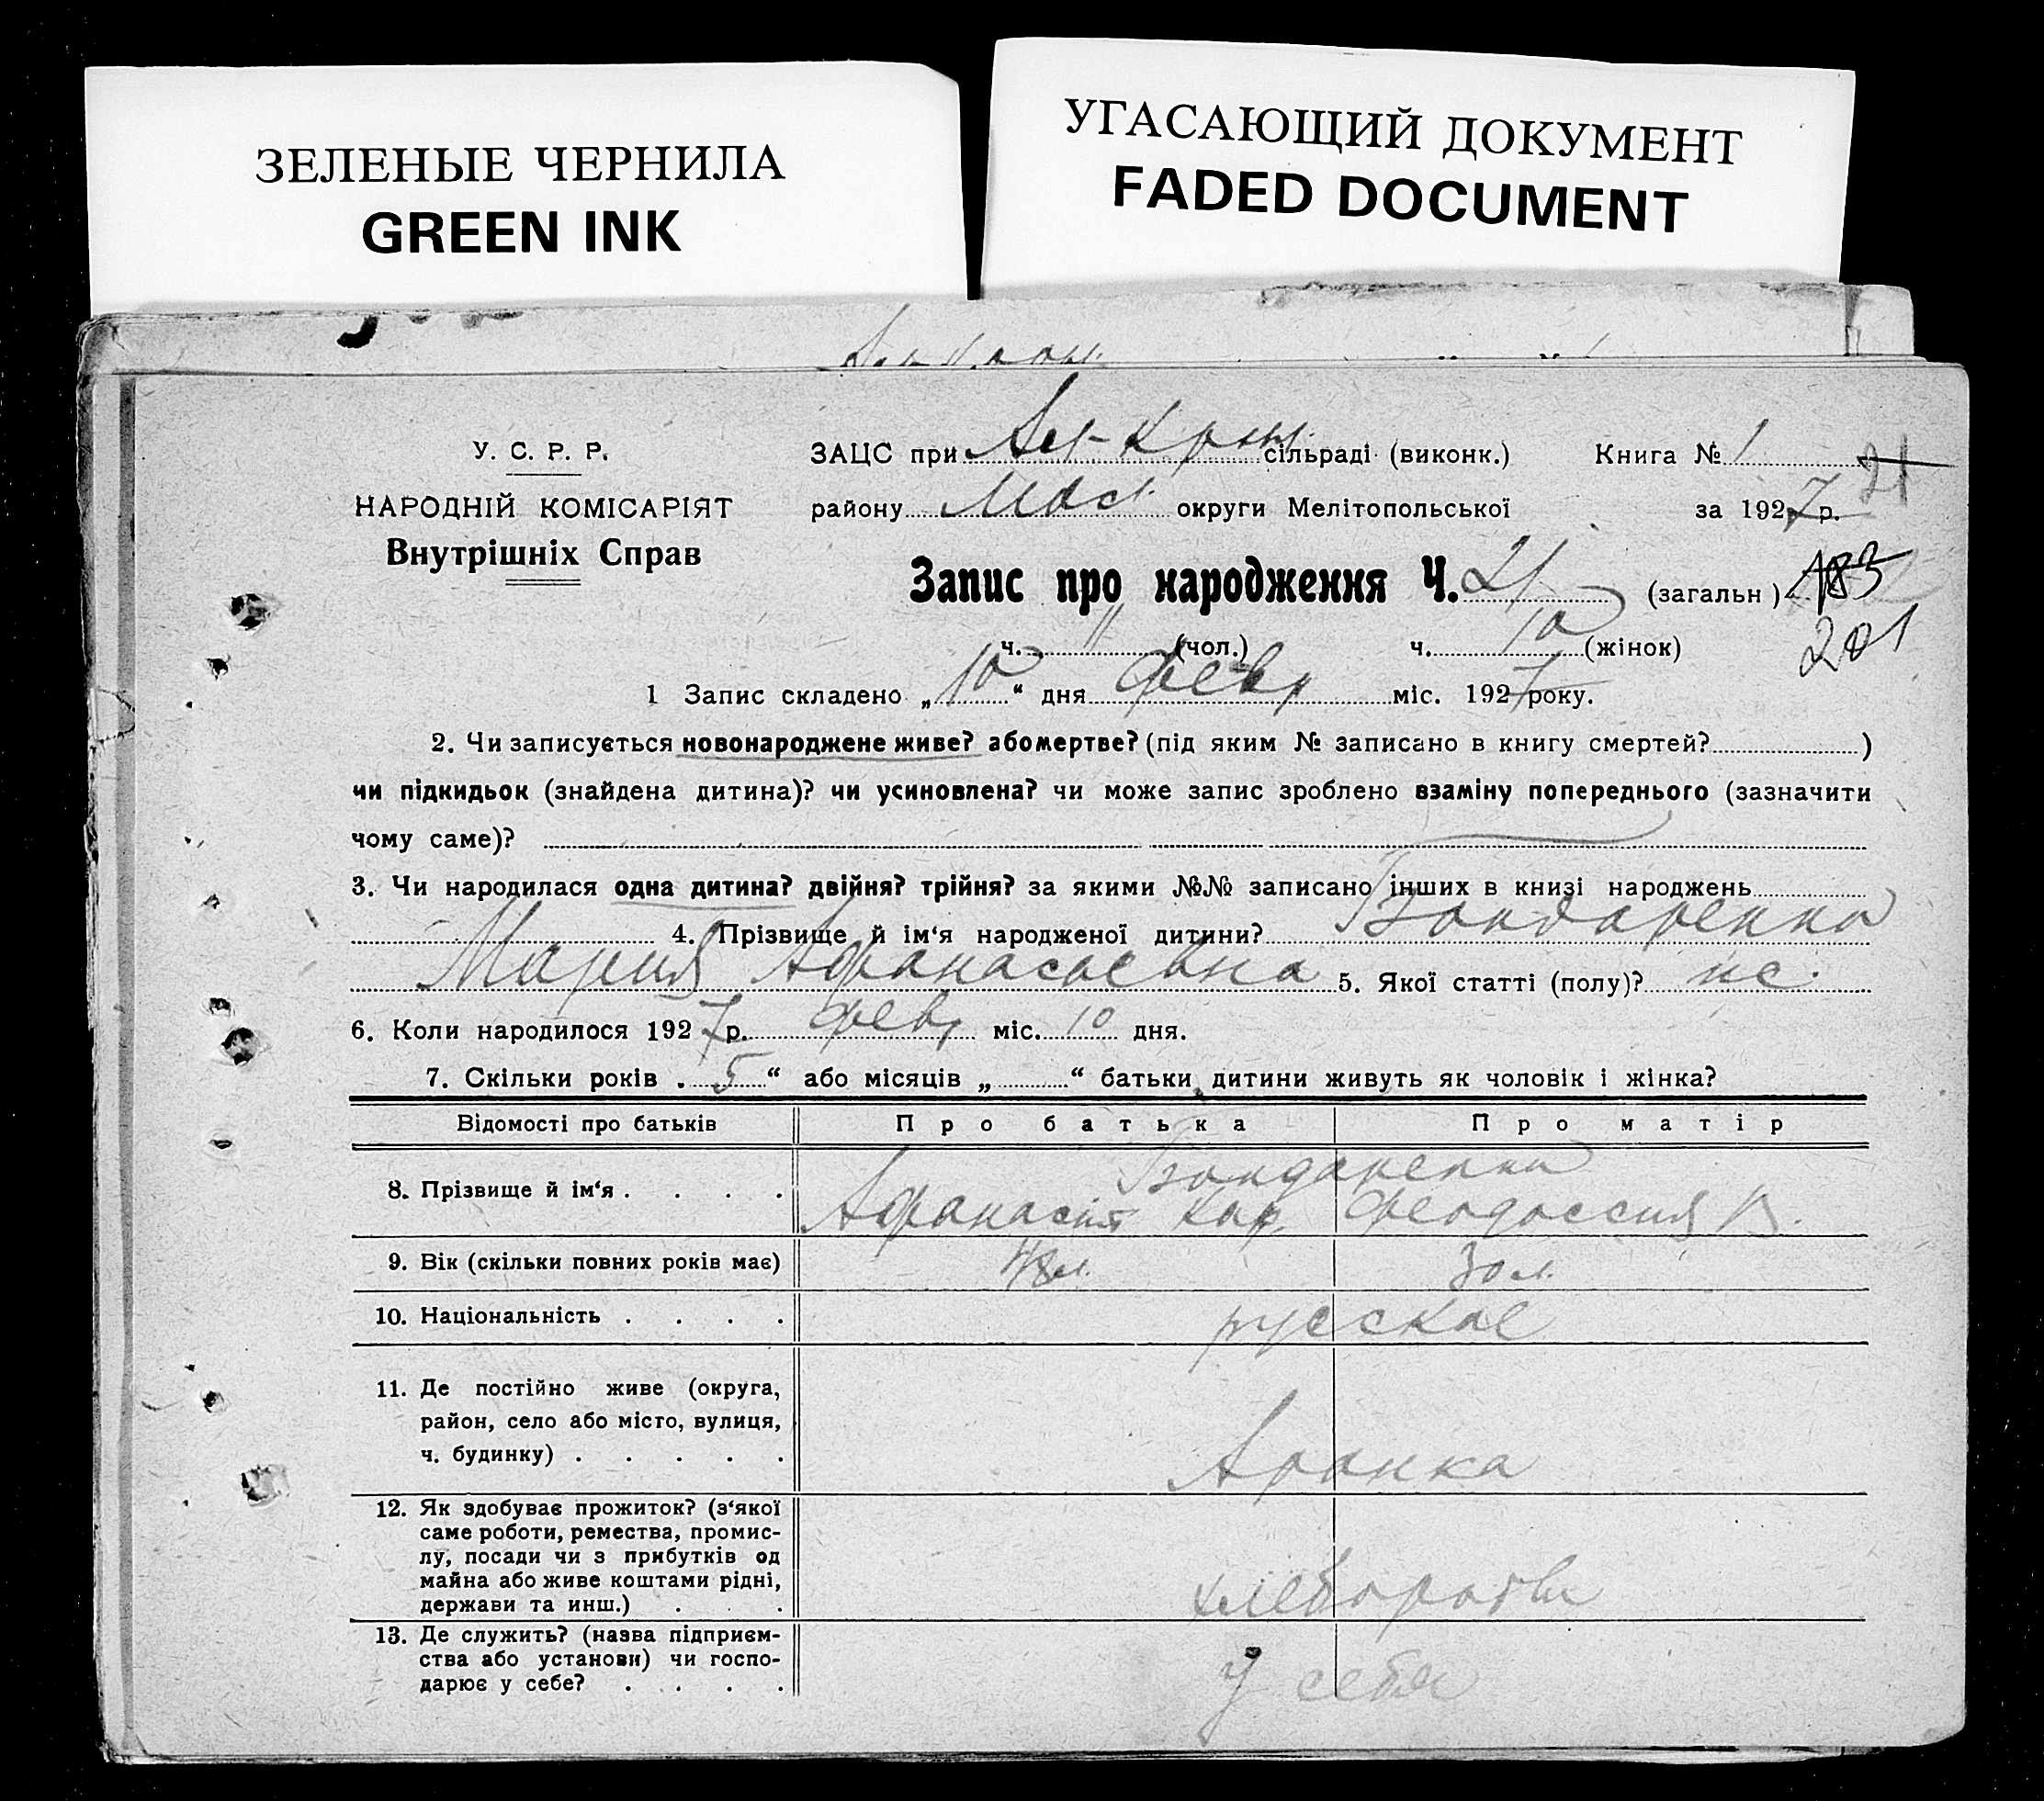 ЗЕЛЕНЫЕ ЧЕРНИЛА
GREEN INK
УГАСАЮЩИЙ ДОКУМЕНТ
FADED DOCUMENT
У. С. Р. Р.
НАРОДНІЙ КОМІСАРІЯТ
Внутрішніх Справ
ЗАЦС при сільраді (виконк.) Книга № 1
21
району округи Мелітопольської за 1927 р.
Запис про народження Ч. 21 (загальн) 183
201
ч. 11 (чол.) ч. 10 (жінок)
1 Запис складено „10“ дня февр міс. 1927 року.
2. Чи записується новонароджене живе? або мертве? (під яким № записано в книгу смертей? )
чи підкидьок (знайдена дитина)? чи усиновлена? чи може запис зроблено взаміну попереднього (зазначити
чому саме)?
3. Чи народилася одна дитина? двійня? трійня? за якими №№ записано інших в книзі народжень
4. Прізвище й ім‘я народженої дитини? Бондаренко
Мария Афанасьевна 5. Якої статті (полу)? жс.
6. Коли народилося 1927 р. февр міс. 10 дня.
7. Скільки років „ 5 “ або місяців „ “ батьки дитини живуть як чоловік і жінка?
Відомості про батьків Про батька Про матір
8. Прізвище й ім‘я . . . . Бондаренко
Афанасий Кар. Феодоссия В.
9. Вік (скільки повних років має) 48 л. 30 л.
10. Національність . . . . русские
11. Де постійно живе (округа,
район, село або місто, вулиця,
ч. будинку) . . . . .
12. Як здобуває прожиток? (з‘якої
саме роботи, ремества, промис-
лу, посади чи з прибутків од
майна або живе коштами рідні,
держави та инш.) . . хлеборобы
13. Де служить? (назва підприєм-
ства або установи) чи госпо-
дарює у себе? . . . . у себя